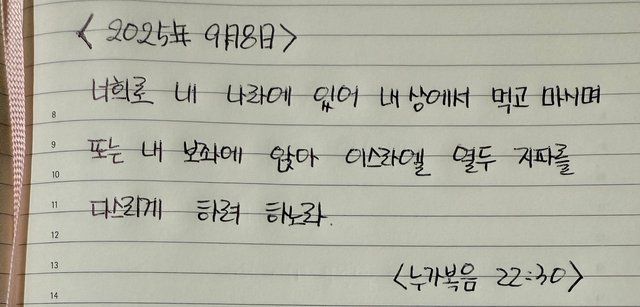 <2025年 9月8日>
너희로 내 나라에 있어 내 상에서 먹고 마시며
8
또는 내 보좌에 앉아 이스라엘 열두 지파를
9
10
다스리게 하려 하노라.
11
12
<누가복음 22:30>
13
14